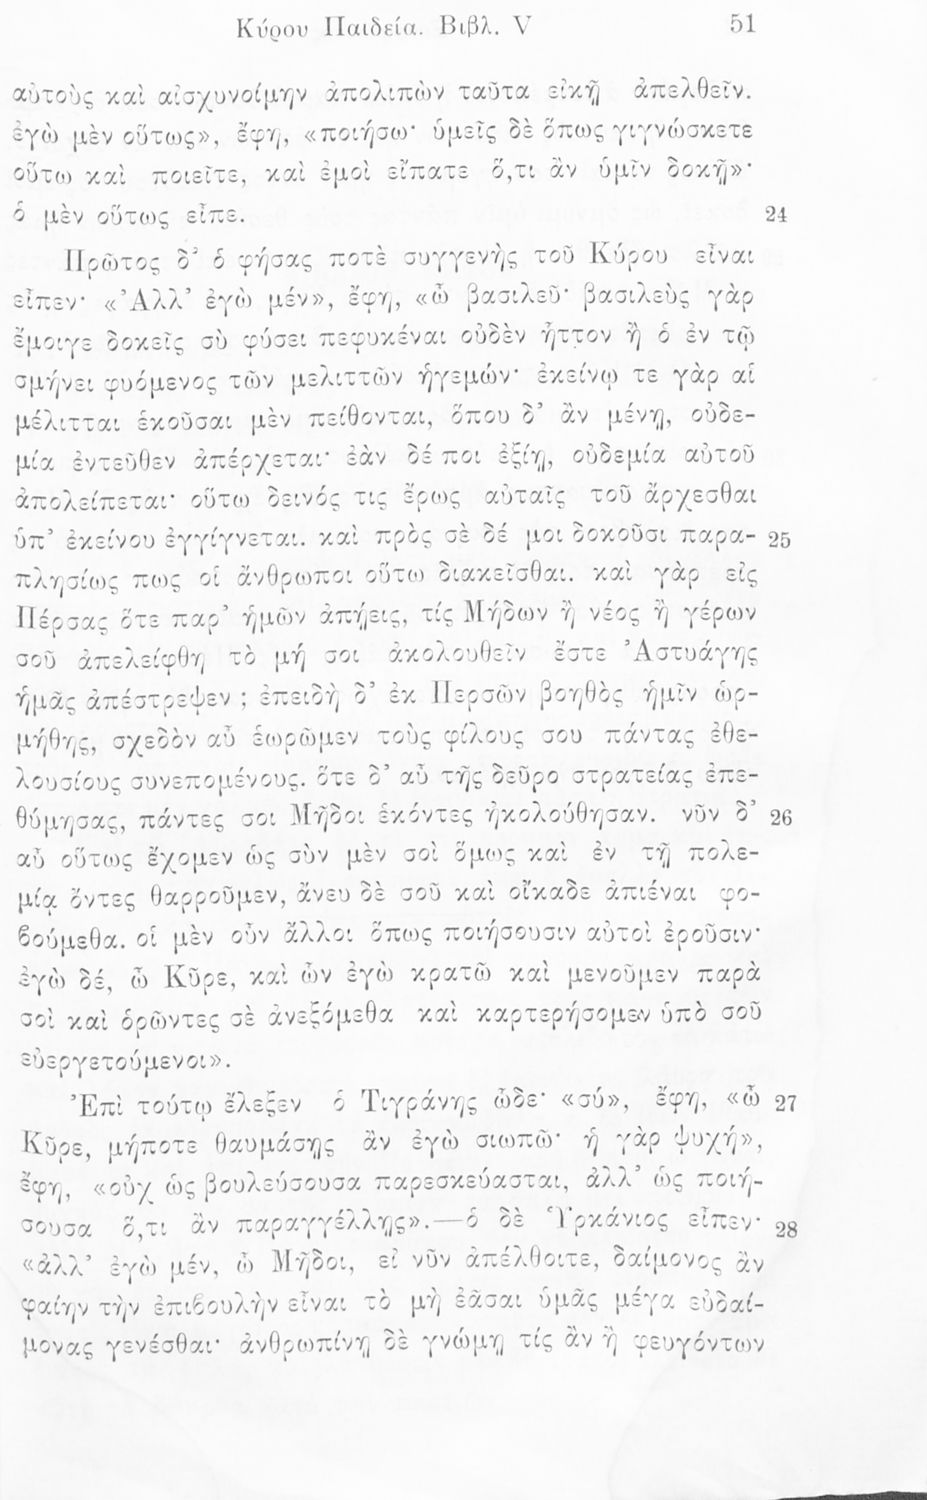 Κύρου Παιδεία. Βιβλ. V 51
αὐτοὺς καὶ αἰσχυνοίμην ἀπολιπὼν ταῦτα εἰκῇ ἀπελθεῖν.
ἐγὼ μὲν οὕτως», ἔφη, «ποιήσω· ὑμεῖς δὲ ὅπως γιγνώσκετε
οὕτω καὶ ποιεῖτε, καὶ ἐμοὶ εἴπατε ὅ,τι ἂν ὑμῖν δοκῇ»·
ὁ μὲν οὕτως εἶπε. 24
Πρῶτος δ’ ὁ φήσας ποτὲ συγγενὴς τοῦ Κύρου εἶναι
εἶπεν· «Ἀλλ’ ἐγὼ μέν», ἔφη, «ὦ βασιλεῦ· βασιλεὺς γὰρ
ἔμοιγε δοκεῖς σὺ φύσει πεφυκέναι οὐδὲν ἧττον ἢ ὁ ἐν τῷ
σμήνει φυόμενος τῶν μελιττῶν ἡγεμών· ἐκείνῳ τε γὰρ αἱ
μέλιτται ἑκοῦσαι μὲν πείθονται, ὅπου δ’ ἂν μένῃ, οὐδε-
μία ἐντεῦθεν ἀπέρχεται· ἐὰν δέ ποι ἐξίῃ, οὐδεμία αὐτοῦ
ἀπολείπεται· οὕτω δεινός τις ἔρως αὐταῖς τοῦ ἄρχεσθαι
ὑπ’ ἐκείνου ἐγγίγνεται. καὶ πρὸς σὲ δέ μοι δοκοῦσι παρα- 25
πλησίως πως οἱ ἄνθρωποι οὕτω διακεῖσθαι. καὶ γὰρ εἰς
Πέρσας ὅτε παρ’ ἡμῶν ἀπῄεις, τίς Μήδων ἢ νέος ἢ γέρων
σοῦ ἀπελείφθη τὸ μή σοι ἀκολουθεῖν ἔστε Ἀστυάγης
ἡμᾶς ἀπέστρεψεν ; ἐπειδὴ δ’ ἐκ Περσῶν βοηθὸς ἡμῖν ὡρ-
μήθης, σχεδὸν αὖ ἑωρῶμεν τοὺς φίλους σου πάντας ἐθε-
λουσίους συνεπομένους. ὅτε δ’ αὖ τῆς δεῦρο στρατείας ἐπε-
θύμησας, πάντες σοι Μῆδοι ἑκόντες ἠκολούθησαν. νῦν δ’ 26
αὖ οὕτως ἔχομεν ὡς σὺν μὲν σοὶ ὅμως καὶ ἐν τῇ πολε-
μίᾳ ὄντες θαρροῦμεν, ἄνευ δὲ σοῦ καὶ οἴκαδε ἀπιέναι φο-
ϐούμεθα. οἱ μὲν οὖν ἄλλοι ὅπως ποιήσουσιν αὐτοὶ ἐροῦσιν·
ἐγὼ δέ, ὦ Κῦρε, καὶ ὧν ἐγὼ κρατῶ καὶ μενοῦμεν παρὰ
σοὶ καὶ ὁρῶντες σὲ ἀνεξόμεθα καὶ καρτερήσομεν ὑπὸ σοῦ
εὐεργετούμενοι».
Ἐπὶ τούτῳ ἔλεξεν ὁ Τιγράνης ὧδε· «σύ», ἔφη, «ὦ 27
Κῦρε, μήποτε θαυμάσῃς ἂν ἐγὼ σιωπῶ· ἡ γὰρ ψυχή»,
ἔφη, «οὐχ ὡς βουλεύσουσα παρεσκεύασται, ἀλλ’ ὡς ποιή-
σουσα ὅ,τι ἂν παραγγέλλῃς».—ὁ δὲ Ὑρκάνιος εἶπεν· 28
«ἀλλ’ ἐγὼ μέν, ὦ Μῆδοι, εἰ νῦν ἀπέλθοιτε, δαίμονος ἂν
φαίην τὴν ἐπιϐουλὴν εἶναι τὸ μὴ ἐᾶσαι ὑμᾶς μέγα εὐδαί-
μονας γενέσθαι· ἀνθρωπίνῃ δὲ γνώμῃ τίς ἂν ἢ φευγόντων